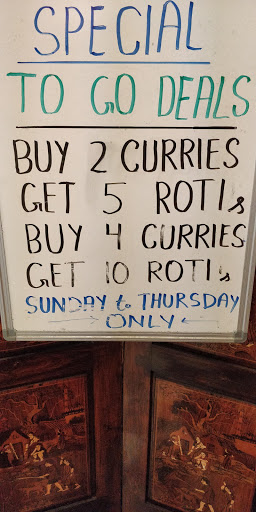 SPECIAL
TO GO DEALS
BUY 2 CURRIES
GET 5 ROTIs
BUY 4 CURRIES
GET 10 ROTIs
SUNDAY to THURSDAY
ONLY